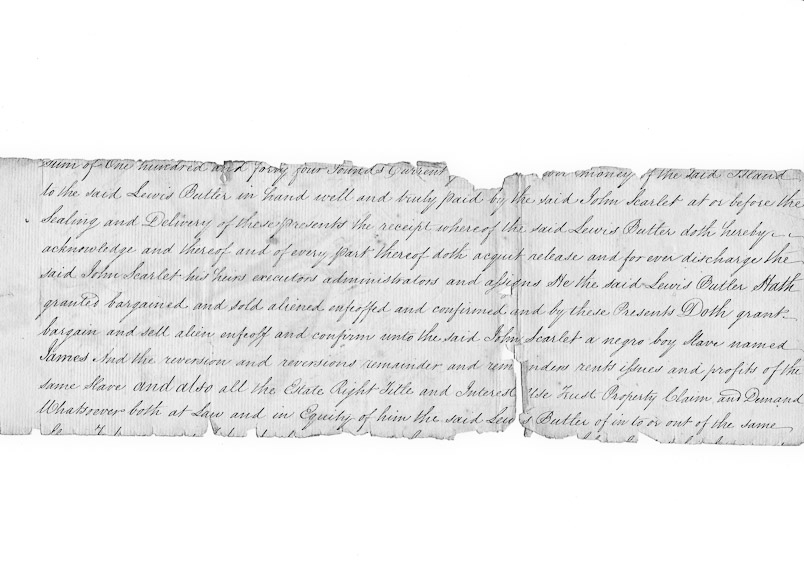 Sum of One hundred and forty four Pounds Current or money of the said Island
to the said Lewis Butler in hand well and truly paid by the said John Scarlet at or before the
Sealing and Delivery of these presents the receipt whereof the said Lewis Butler doth hereby
acknowledge and thereof and of every part thereof doth acquit release and for ever discharge the
said John Scarlet his heirs executors administrators and assigns He the said Lewis Butler Hath
granted bargained and sold aliened enfeoffed and confirmed and by these Presents Doth grant
bargain and sell alien enfeoff and confirm unto the said John Scarlet a negro boy Slave named
James And the reversion and reversions remainder and remainders rents issues and profits of the
same Slave and also all the Estate Right Title and Interest Use Trust Property Claim and Demand
Whatsoever both at Law and in Equity of him the said Lewis Butler of in to or out of the same